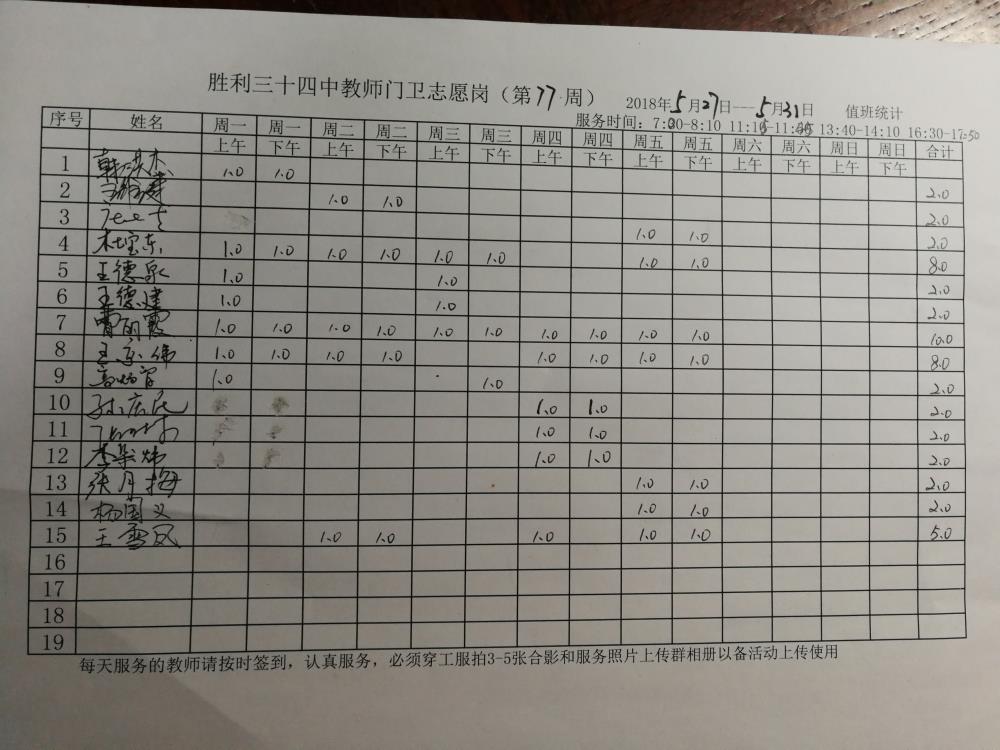 胜利三十四中教师门卫志愿岗（第77周） 2018年5月27日---5月31日 值班统计
服务时间：7:00-8:10 11:15-11:45 13:40-14:10 16:30-17:50
序号 姓名 周一 周一 周二 周二 周三 周三 周四 周四 周五 周五 周六 周六 周日 周日 合计
上午 下午 上午 下午 上午 下午 上午 下午 上午 下午 上午 下午 上午 下午
1 1.0 1.0 2.0
2 1.0 1.0 2.0
3 1.0 1.0 2.0
4 杜宝东 1.0 1.0 1.0 1.0 1.0 1.0 1.0 1.0 8.0
5 王德泉 1.0 1.0 2.0
6 王德建 1.0 1.0 2.0
7 曹丽霞 1.0 1.0 1.0 1.0 1.0 1.0 1.0 1.0 1.0 1.0 10.0
8 王京伟 1.0 1.0 1.0 1.0 1.0 1.0 1.0 1.0 8.0
9 1.0 1.0 2.0
10 孙庆民 1.0 1.0 2.0
11 1.0 1.0 2.0
12 1.0 1.0 2.0
13 张月梅 1.0 1.0 2.0
14 杨国义 1.0 1.0 2.0
15 王雪凤 1.0 1.0 1.0 1.0 1.0 5.0
16
17
18
19
每天服务的教师请按时签到，认真服务，必须穿工服拍3-5张合影和服务照片上传群相册以备活动上传使用